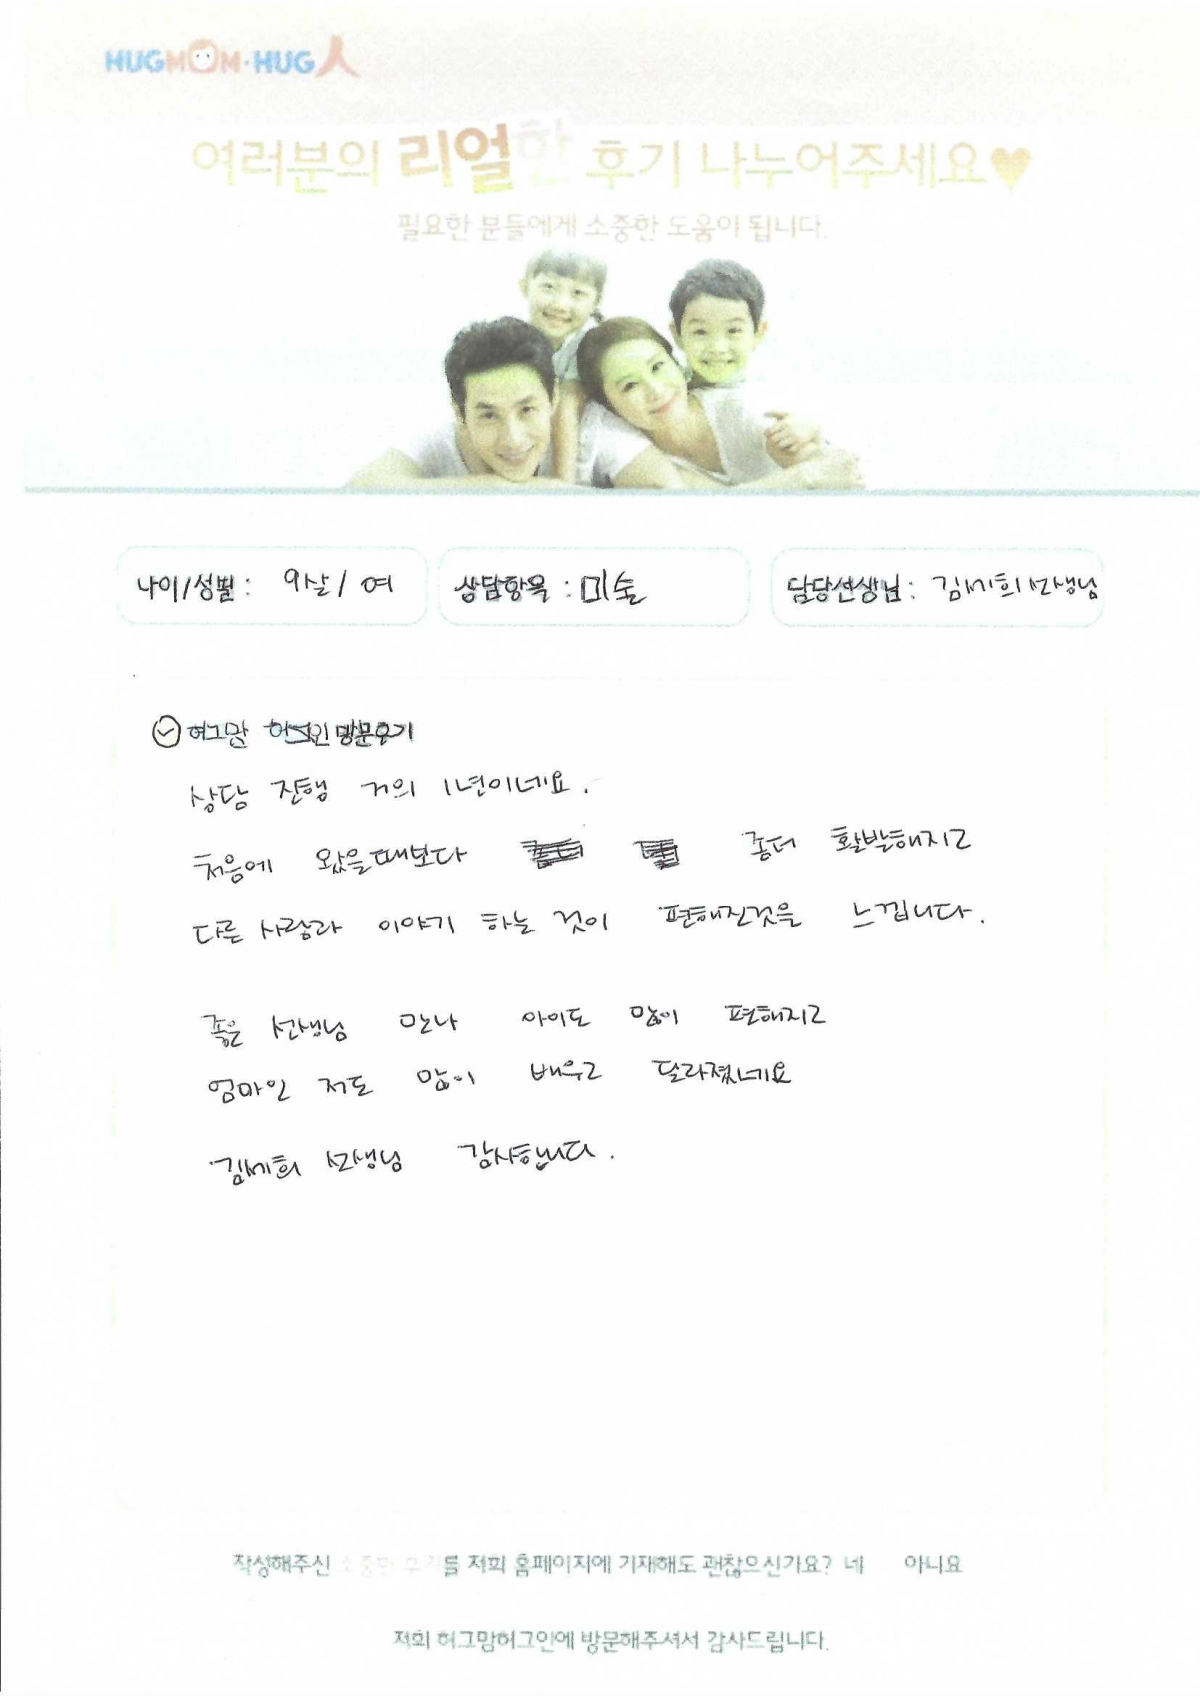 HUGMOM·HUG人
여러분의 리얼한 후기 나누어주세요♥
필요한 분들에게 소중한 도움이 됩니다.
나이/성별 : 9살 / 여
상담항목 : 미술
담당선생님 : 김세희 선생님
허그맘 허그인 방문후기
상담 진행 거의 1년이네요.
처음에 왔을때보다 좀더 활발해지고
다른 사람과 이야기 하는 것이 편해진것을 느낍니다.
좋은 선생님 만나 아이도 많이 편해지고
엄마인 저도 많이 배우고 달라졌네요
김세희 선생님 감사합니다.
작성해주신 소중한 후기를 저희 홈페이지에 기재해도 괜찮으신가요? 네 아니요
저희 허그맘허그인에 방문해주셔서 감사드립니다.